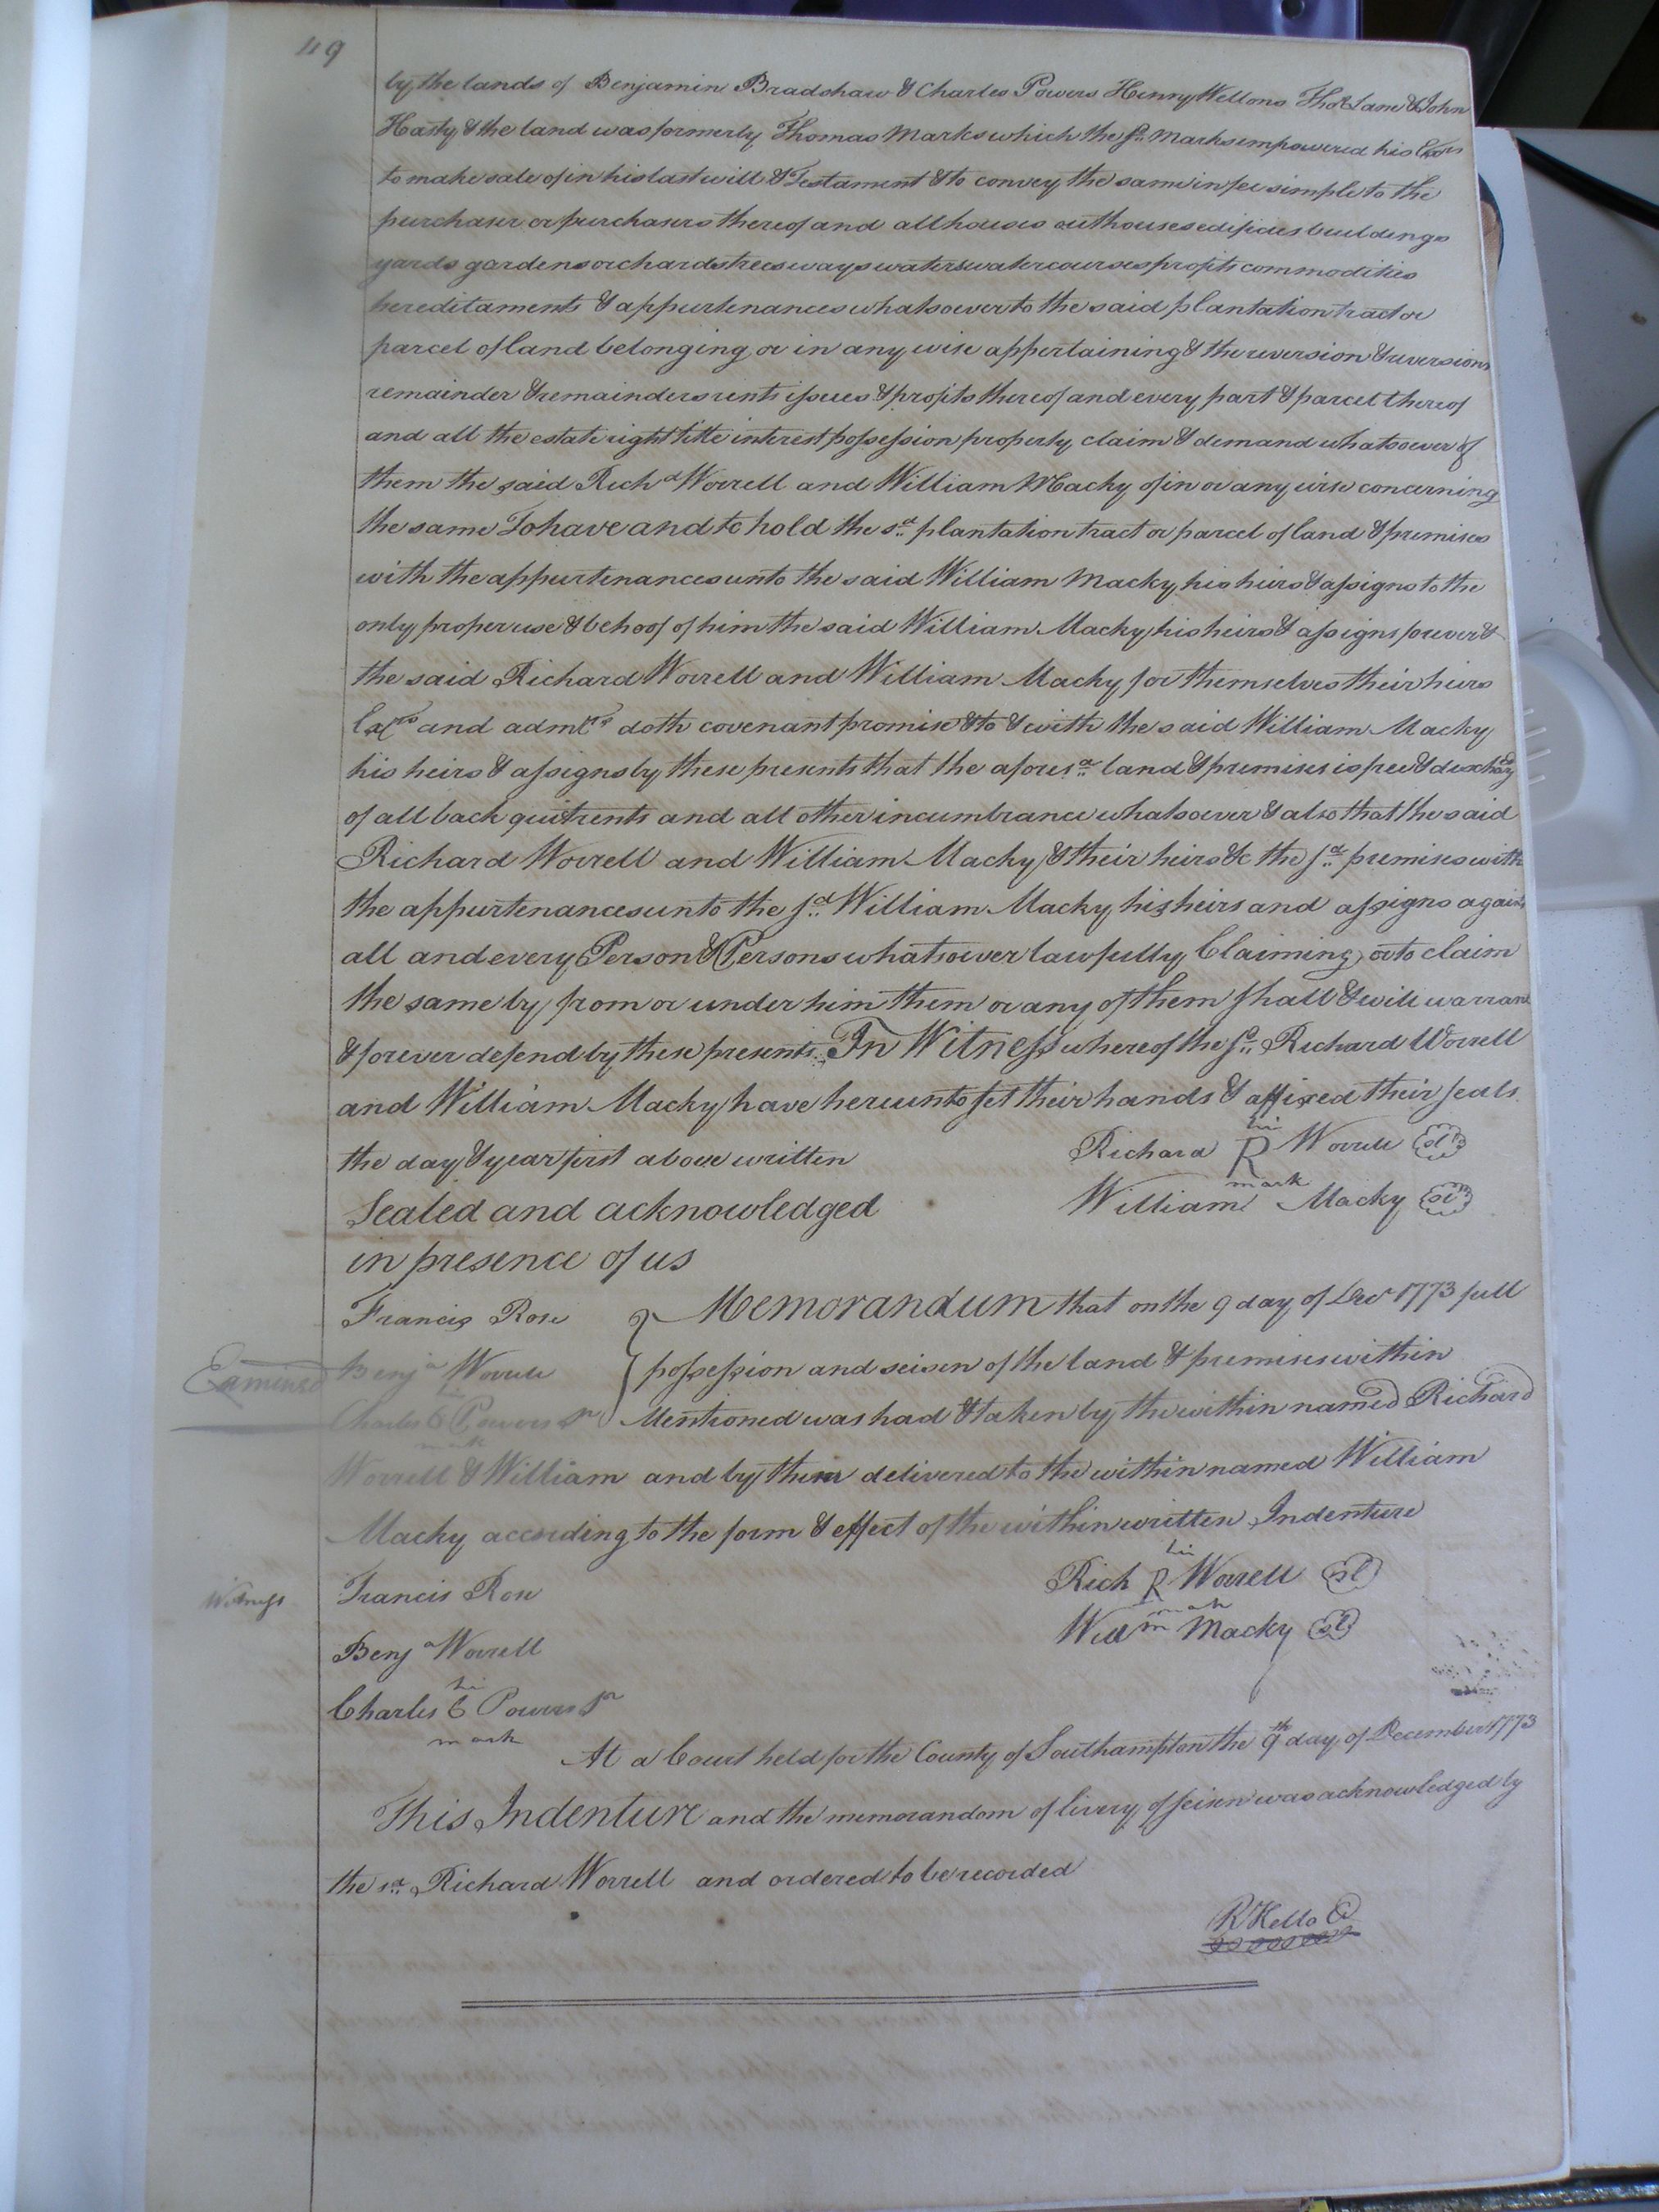 119
by the lands of Benjamin Bradshaw & Charles Powers Henry Wellons Thos Lane & John
Hasty & the land was formerly Thomas Marks which the sd. Marks empowered his Exors
to make sale of in his last will & Testament & to convey the same in fee simple to the
purchaser or purchasers thereof and all houses outhouses edifices buildings
yards gardens orchards trees ways waters watercourses profits commodities
hereditaments & appurtenances whatsoever to the said plantation tract or
parcel of land belonging or in any wise appertaining & the reversion & reversions
remainder & remainders rents issues & profits thereof and every part & parcel thereof
and all the estate right title interest possession property claim & demand whatsoever of
them the said Richd Worrell and William Macky of in or any wise concerning
the same To have and to hold the sd. plantation tract or parcel of land & premises
with the appurtenances unto the said William Macky his heirs & assigns to the
only proper use & behoof of him the said William Macky his heirs & assigns forever &
the said Richard Worrell and William Macky for themselves their heirs
and doth covenant promise & to & with the said William Macky
his heirs & assigns by these presents that the aforesd. land & premises is free &
of all back quitrents and all other incumbrance whatsoever & also that the said
Richard Worrell and William Macky & their heirs &c the sd. premises with
the appurtenances unto the sd. William Macky his heirs and assigns against
all and every Person & Persons whatsoever lawfully Claiming or to claim
the same by from or under him them or any of them shall & will warrant
& forever defend by these presents. In Witness whereof the sd. Richard Worrell
and William Macky have hereunto set their hands & affixed their seals
the day & year first above written
Richard his R mark Worrell
Sealed and acknowledged
William Macky
in presence of us
Francis Rose
Benja Worrell
Charles C Powers Sr
mark
Examined
Memorandum that on the 9 day of Decr 1773 full
possession and seisen of the land & premises within
Mentioned was had & taken by the within named Richard
Worrell & William and by them delivered to the within named William
Macky according to the form & effect of the within written Indenture
Witness
Francis Rose
Rich his R mark Worrell
Willm Macky
Benja Worrell
Charles his C mark Powers Sr
At a Court held for the County of Southampton the 9th day of December 1773
This Indenture and the memorandom of livery of seisen was acknowledged by
the sd. Richard Worrell and ordered to be recorded
R Kello